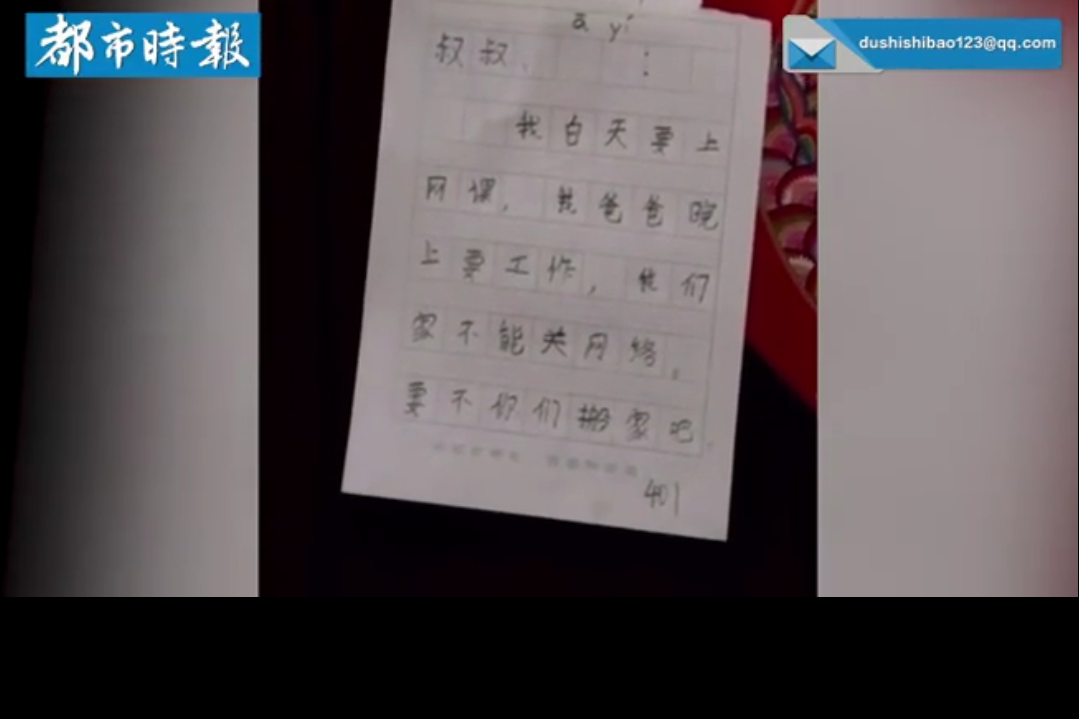 都市時報
dushishibao123@qq.com
ā yí
叔叔、 :
我白天要上
网课，我爸爸晚
上要工作，我们
家不能关网络。
要不你们搬家吧。
401